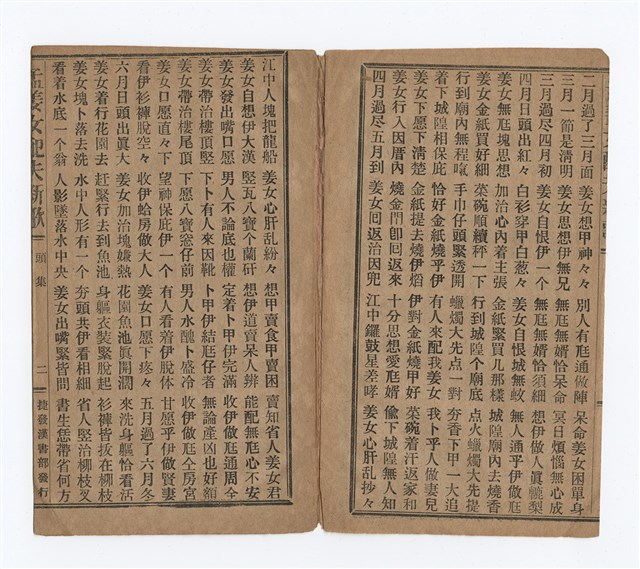 二月過了三月面 姜女想甲神々々 別人有尫通做陣 呆命姜女困單身
三月一節是清明 姜女思想伊無兄 無尫無婿恰呆命 冥日煩惱無心成
三月過尽四月初 姜女自恨伊一个 無尫無婿恰須細 想伊做人眞僥梨
四月日頭出紅々 白衫穿甲白葱々 姜女自恨城無蚊 無人通乎伊做尫
姜女無尫塊思想 加治心內着主張 金紙緊買几那樣 城隍廟內去燒香
姜女金紙買好細 菜碗順續秤一下 行到城隍个廟底 点火蠟燭大先提
行到廟內無程吼 手巾仔頭緊透開 蠟燭大先点一對 夯香下甲一大追
着下城隍相保庇 恰好金紙燒乎伊 有人來配我姜女 我卜乎人做妻兒
姜女下愿下清楚 金紙提去燒伊焰 伊對金紙燒甲好 菜碗着汗返家和
姜女行入因厝內 燒金門卽囘返來 十分思想愛尫婿 偸下城隍無人知
四月過尽五月到 姜女囘返治因兜 江中鑼鼓星差哮 姜女心肝乱抄々
江中人塊把龍船 姜女心肝乱紛々 想甲賣食甲賣困 賣知省人姜女君
姜女自想伊大漢 堅瓦八寶个蘭矸 想伊道賣呆人辨 能配無尫心不安
姜女發出嘴口愿 男人不論底也權 定着卜甲伊完滿 收伊做尫通周全
姜女帶治樓頂堅 下卜有人來因靴 卜甲伊結尫仔者 無論産凶也好額
姜女帶治樓尾頂 下愿八寶窓仔前 男人水醜卜盛冷 收伊做尫仝房宮
姜女口愿直々下 望神保庇伊一个 有人看着伊脫体 甘愿乎伊做賢妻
看伊衫褲脫空々 收伊蛤房做大人 姜女口愿下疼々 五月過了六月冬
六月日頭出眞大 姜女加治塊嫌熱 花園魚池眞開濶 來洗身軀恰看活
姜女着行花園去 赶緊行去到魚池 身軀衣裝緊脫起 衫褲皆拔在柳枝
姜女塊卜落去洗 水中人形有一个 夯頭共伊看相細 省人竪治柳枝叉
看着水底一个翁 人影墜落水中央 姜女出嘴緊皆問 書生恁帶省何方
孟姜女 夫新歌 頭集 二 捷發漢書部發行